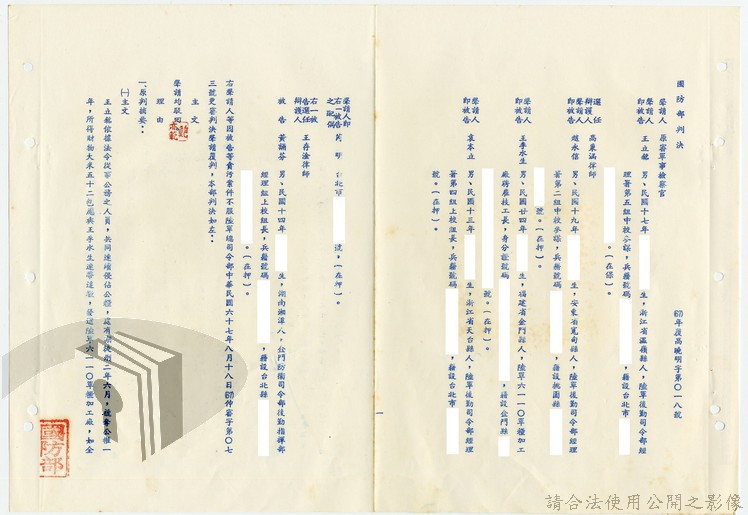 國防部判決
67年覆高曉明字第○一八號
聲請人 原審軍事檢察官
聲請人即被告 王立銘 男、民國十七年 生,浙江省溫嶺縣人,陸軍後勤司令部經
理署第五組中校參謀,兵籍號碼 ,籍設台北市
。(在保)。
選任辯護人 高秉涵律師
聲請人即被告 趙永信 男、民國十九年 生,安東省寬甸縣人,陸軍後勤司令部經理
署第二組中校參謀,兵籍號碼 ,籍設桃園縣
號。(在押)。
聲請人即被告 王季水生 男、民國廿四年 生,福建省金門縣人,陸軍六一一○軍糧加工
廠將雇技工長,身分證號碼 ,籍設金門縣
號。(在押)。
聲請人即被告 袁本立 男、民國十三年 生,浙江省天台縣人,陸軍後勤司令部經理
署第四組上校組長,兵籍號碼 ,籍設台北市
號。(在押)。
一
聲請人即右一被告之配偶 台北市 號,(在押)。
右一被告選任辯護人 王存淦律師
被告 黃誦芬 男、民國十四年 生,湖南湘潭人,金門防衛司令部後勤指揮部
經理組上校組長,兵籍號碼 ,籍設台北縣
。(在押)。
右聲請人等因被告等貪污案件不服陸軍總司令部中華民國六十七年八月十八日67仲審字第○七
三號更審判決聲請覆判,本部判決如左:
主文
聲請均駁回
理由
一、原判摘要:
㈠主文
王立銘依據法令從事公務之人員,共同連續侵佔公糧,處有期徒刑二年六月,褫奪公權一
年,所得財物大米五十二包應與王季水生連帶追繳,發還陸軍六一一○軍糧加工廠,如全
國防部
請合法使用公開之影像